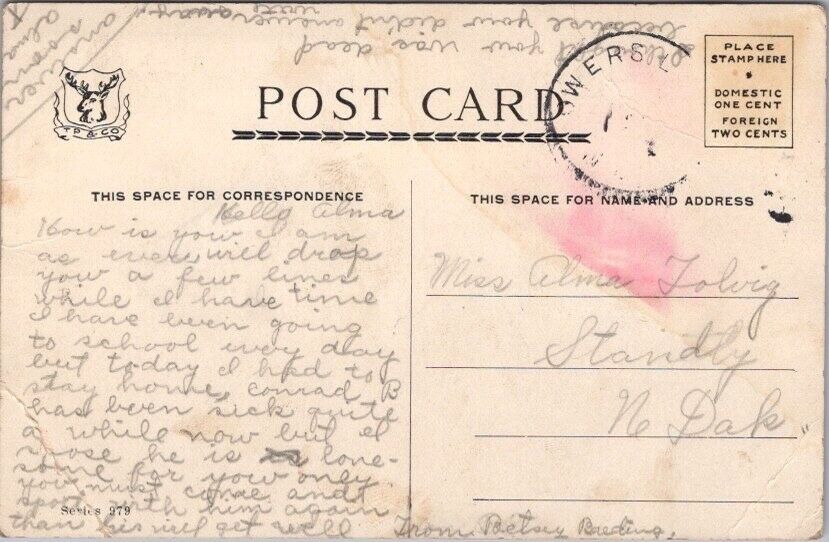 I thought you was dead
because you didn't answer
write away
answer
soon
Alma
TP & CO
POST CARD
OWERS L
PLACE
STAMP HERE
DOMESTIC
ONE CENT
FOREIGN
TWO CENTS
THIS SPACE FOR CORRESPONDENCE
Hello Alma
How is you I am
as ever will drop
you a few lines
while I have time
I have been going
to school every day
but today I had to
stay home, conrad B
has been sick quite
a while now but I
spose he is lone-
some for you only
you must come and
sport with him again
than his will get well
From Betsey Breding.
Series 979
THIS SPACE FOR NAME AND ADDRESS
Miss Alma Tolvig
Standly
N Dak